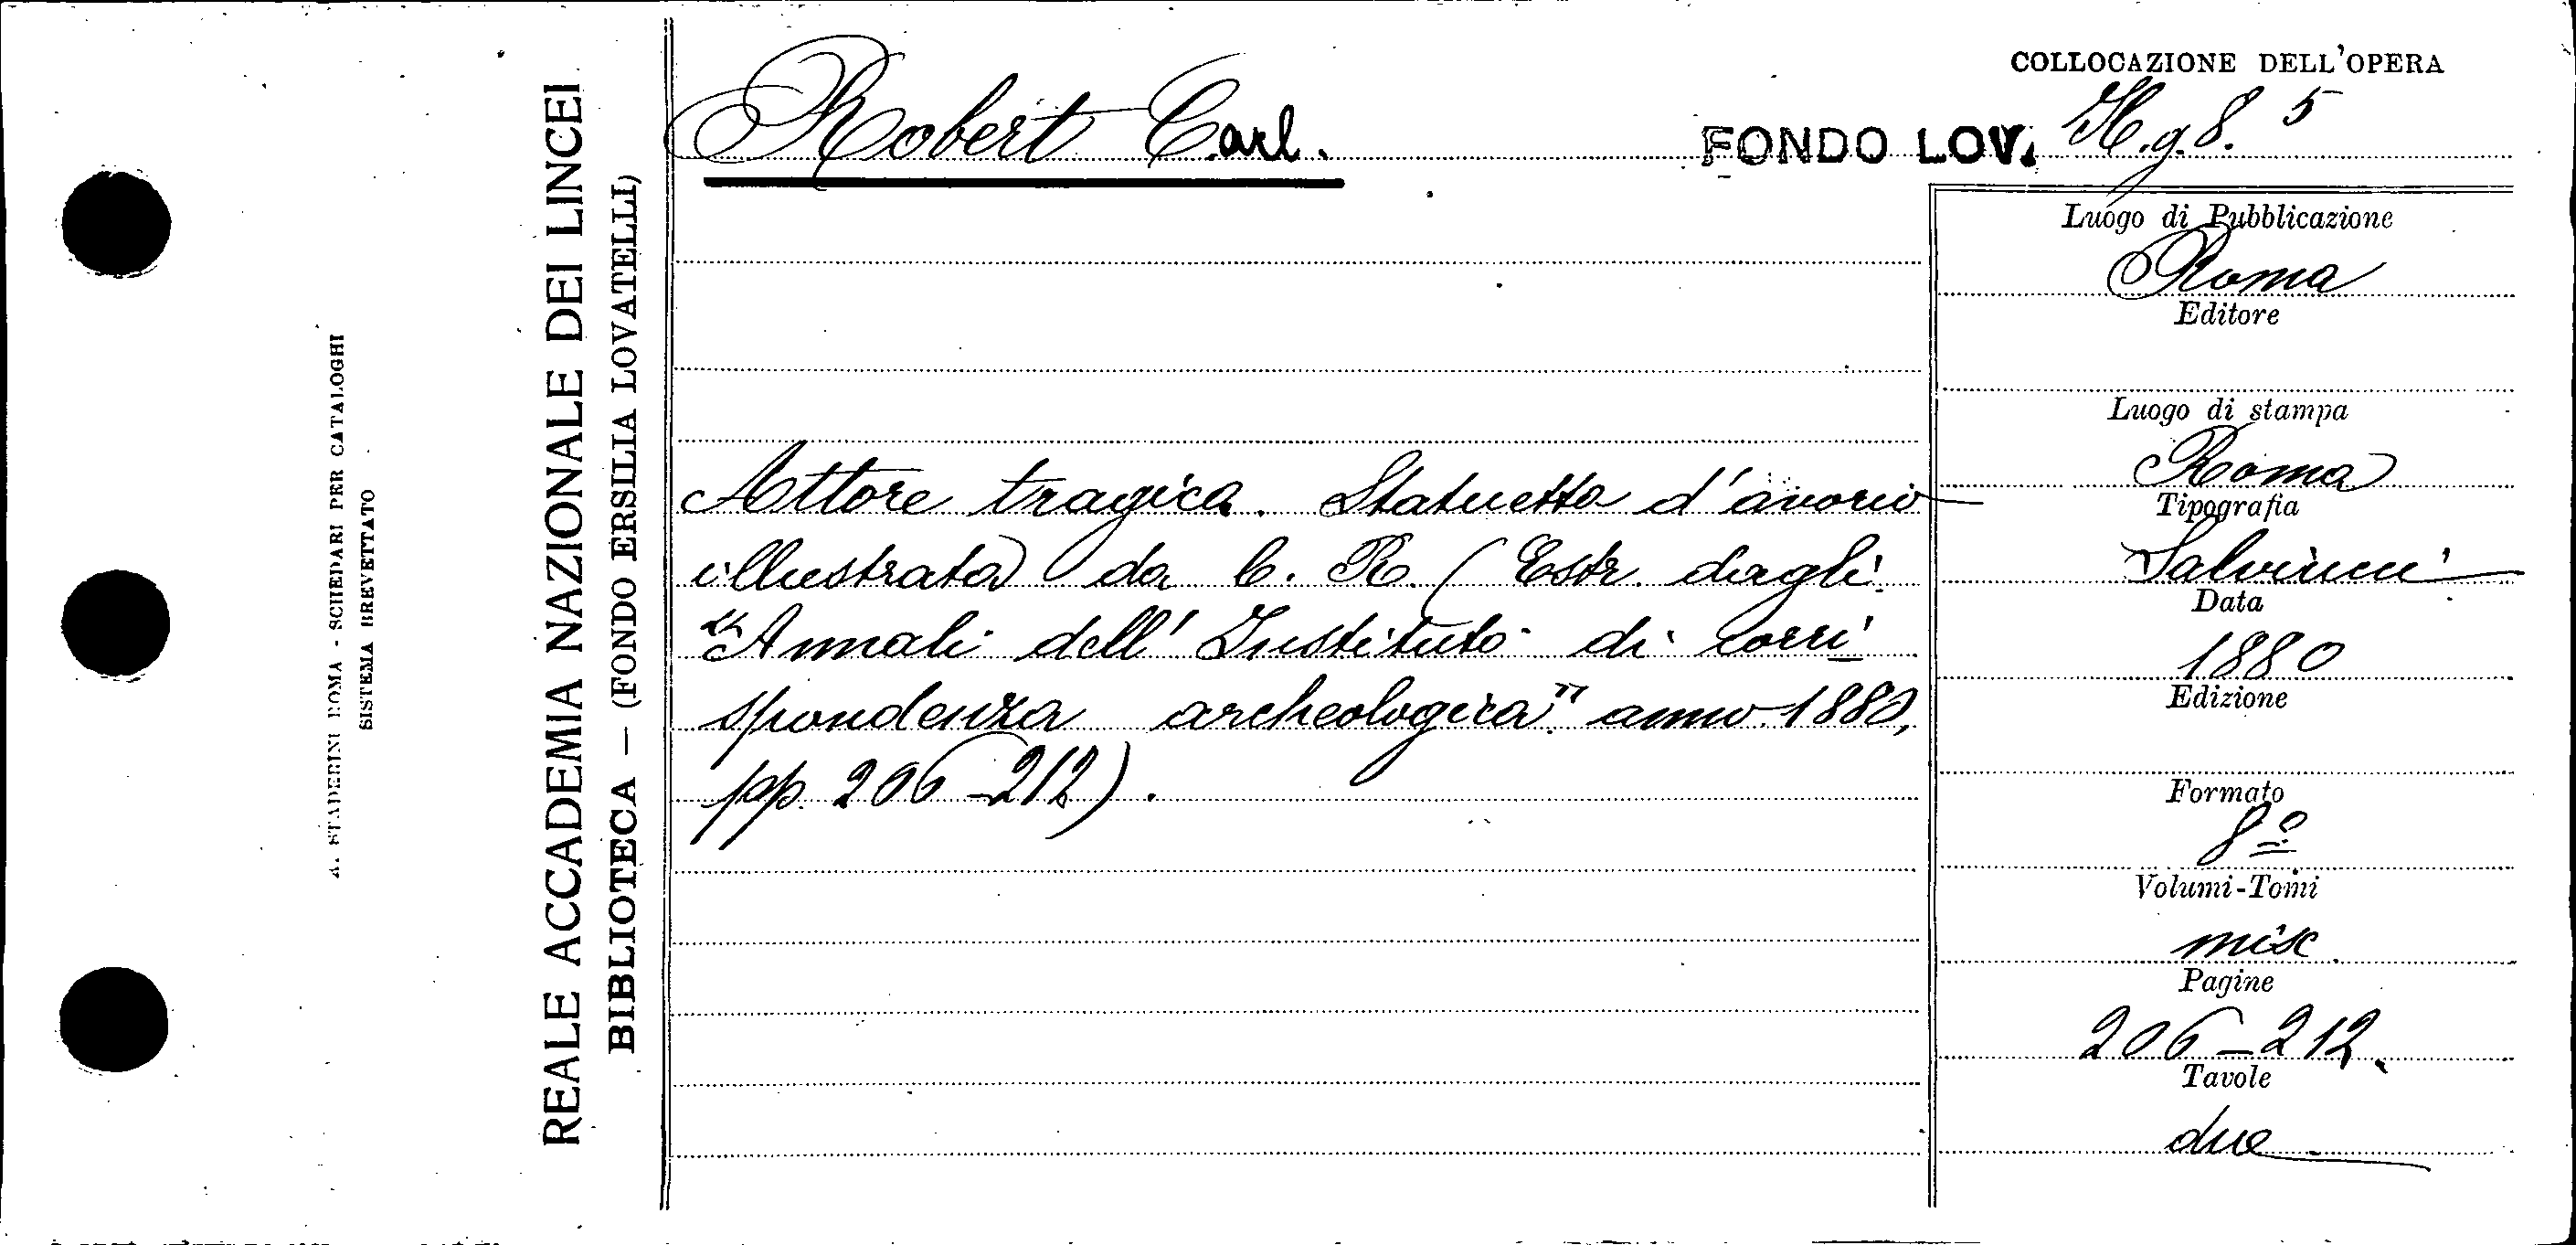 Robert Carl.
COLLOCAZIONE DELL'OPERA
FONDO LOV. H.g.8. 5
Attore tragico. Statuetta d'avorio
illustrata da C. R. (Estr. dagli
"Annali dell' Instituto di corri
spondenza archeologica" anno 1880,
pp. 206-212).
Luogo di Pubblicazione
Roma
Editore
Luogo di stampa
Roma
Tipografia
Salviucci
Data
1880
Edizione
Formato
8º
Volumi-Tomi
misc.
Pagine
206-212.
Tavole
due
REALE ACCADEMIA NAZIONALE DEI LINCEI
BIBLIOTECA — (FONDO ERSILIA LOVATELLI)
A. STADERINI ROMA - SCHEDARI PER CATALOGHI
SISTEMA BREVETTATO